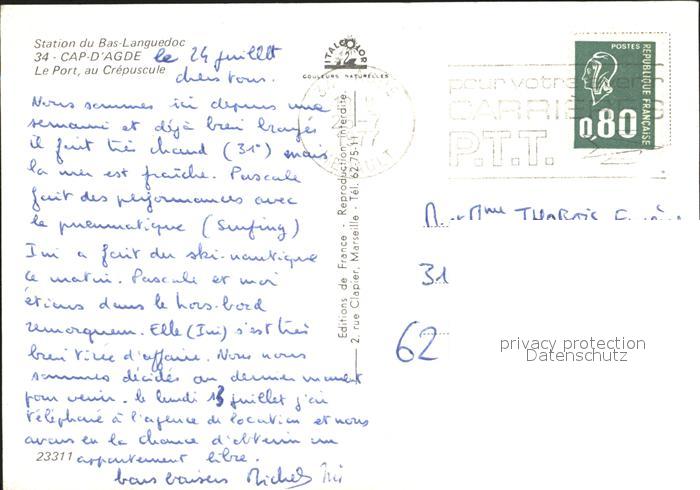 Station du Bas-Languedoc
34 - CAP-D'AGDE
Le Port, au Crépuscule
le 24 juillet
chers tous.
Nous sommes ici depuis une
semaine et déjà bien bronzés
il fait très chaud (31°) mais
la mer est fraîche. Pascale
fait des performances avec
le pneumatique (Surfing)
Ini a fait du ski-nautique
ce matin. Pascale et moi
étions dans le hors-bord
remorqueur. Elle (Ini) s'est très
bien tirée d'affaire. Nous nous
sommes décidés au dernier moment
pour venir. le lundi 18 juillet j'ai
téléphoné à l'agence de location et nous
avons eu la chance d'obtenir un
appartement libre.
bons baisers Michel Ini
23311
ITALCOLOR
COULEURS NATURELLES
Editions de France - Reproduction interdite.
2, rue Clapier, Marseille - Tél. 62-75-11
HERAULT
pour votre
CARRIERES
P.T.T.
POSTES
REPUBLIQUE FRANÇAISE
0,80
Mme
31
62
privacy protection
Datenschutz